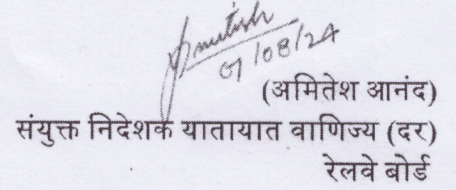 Amitesh
07/08/24
(अमितेश आनंद)
संयुक्त निदेशक यातायात वाणिज्य (दर)
रेलवे बोर्ड